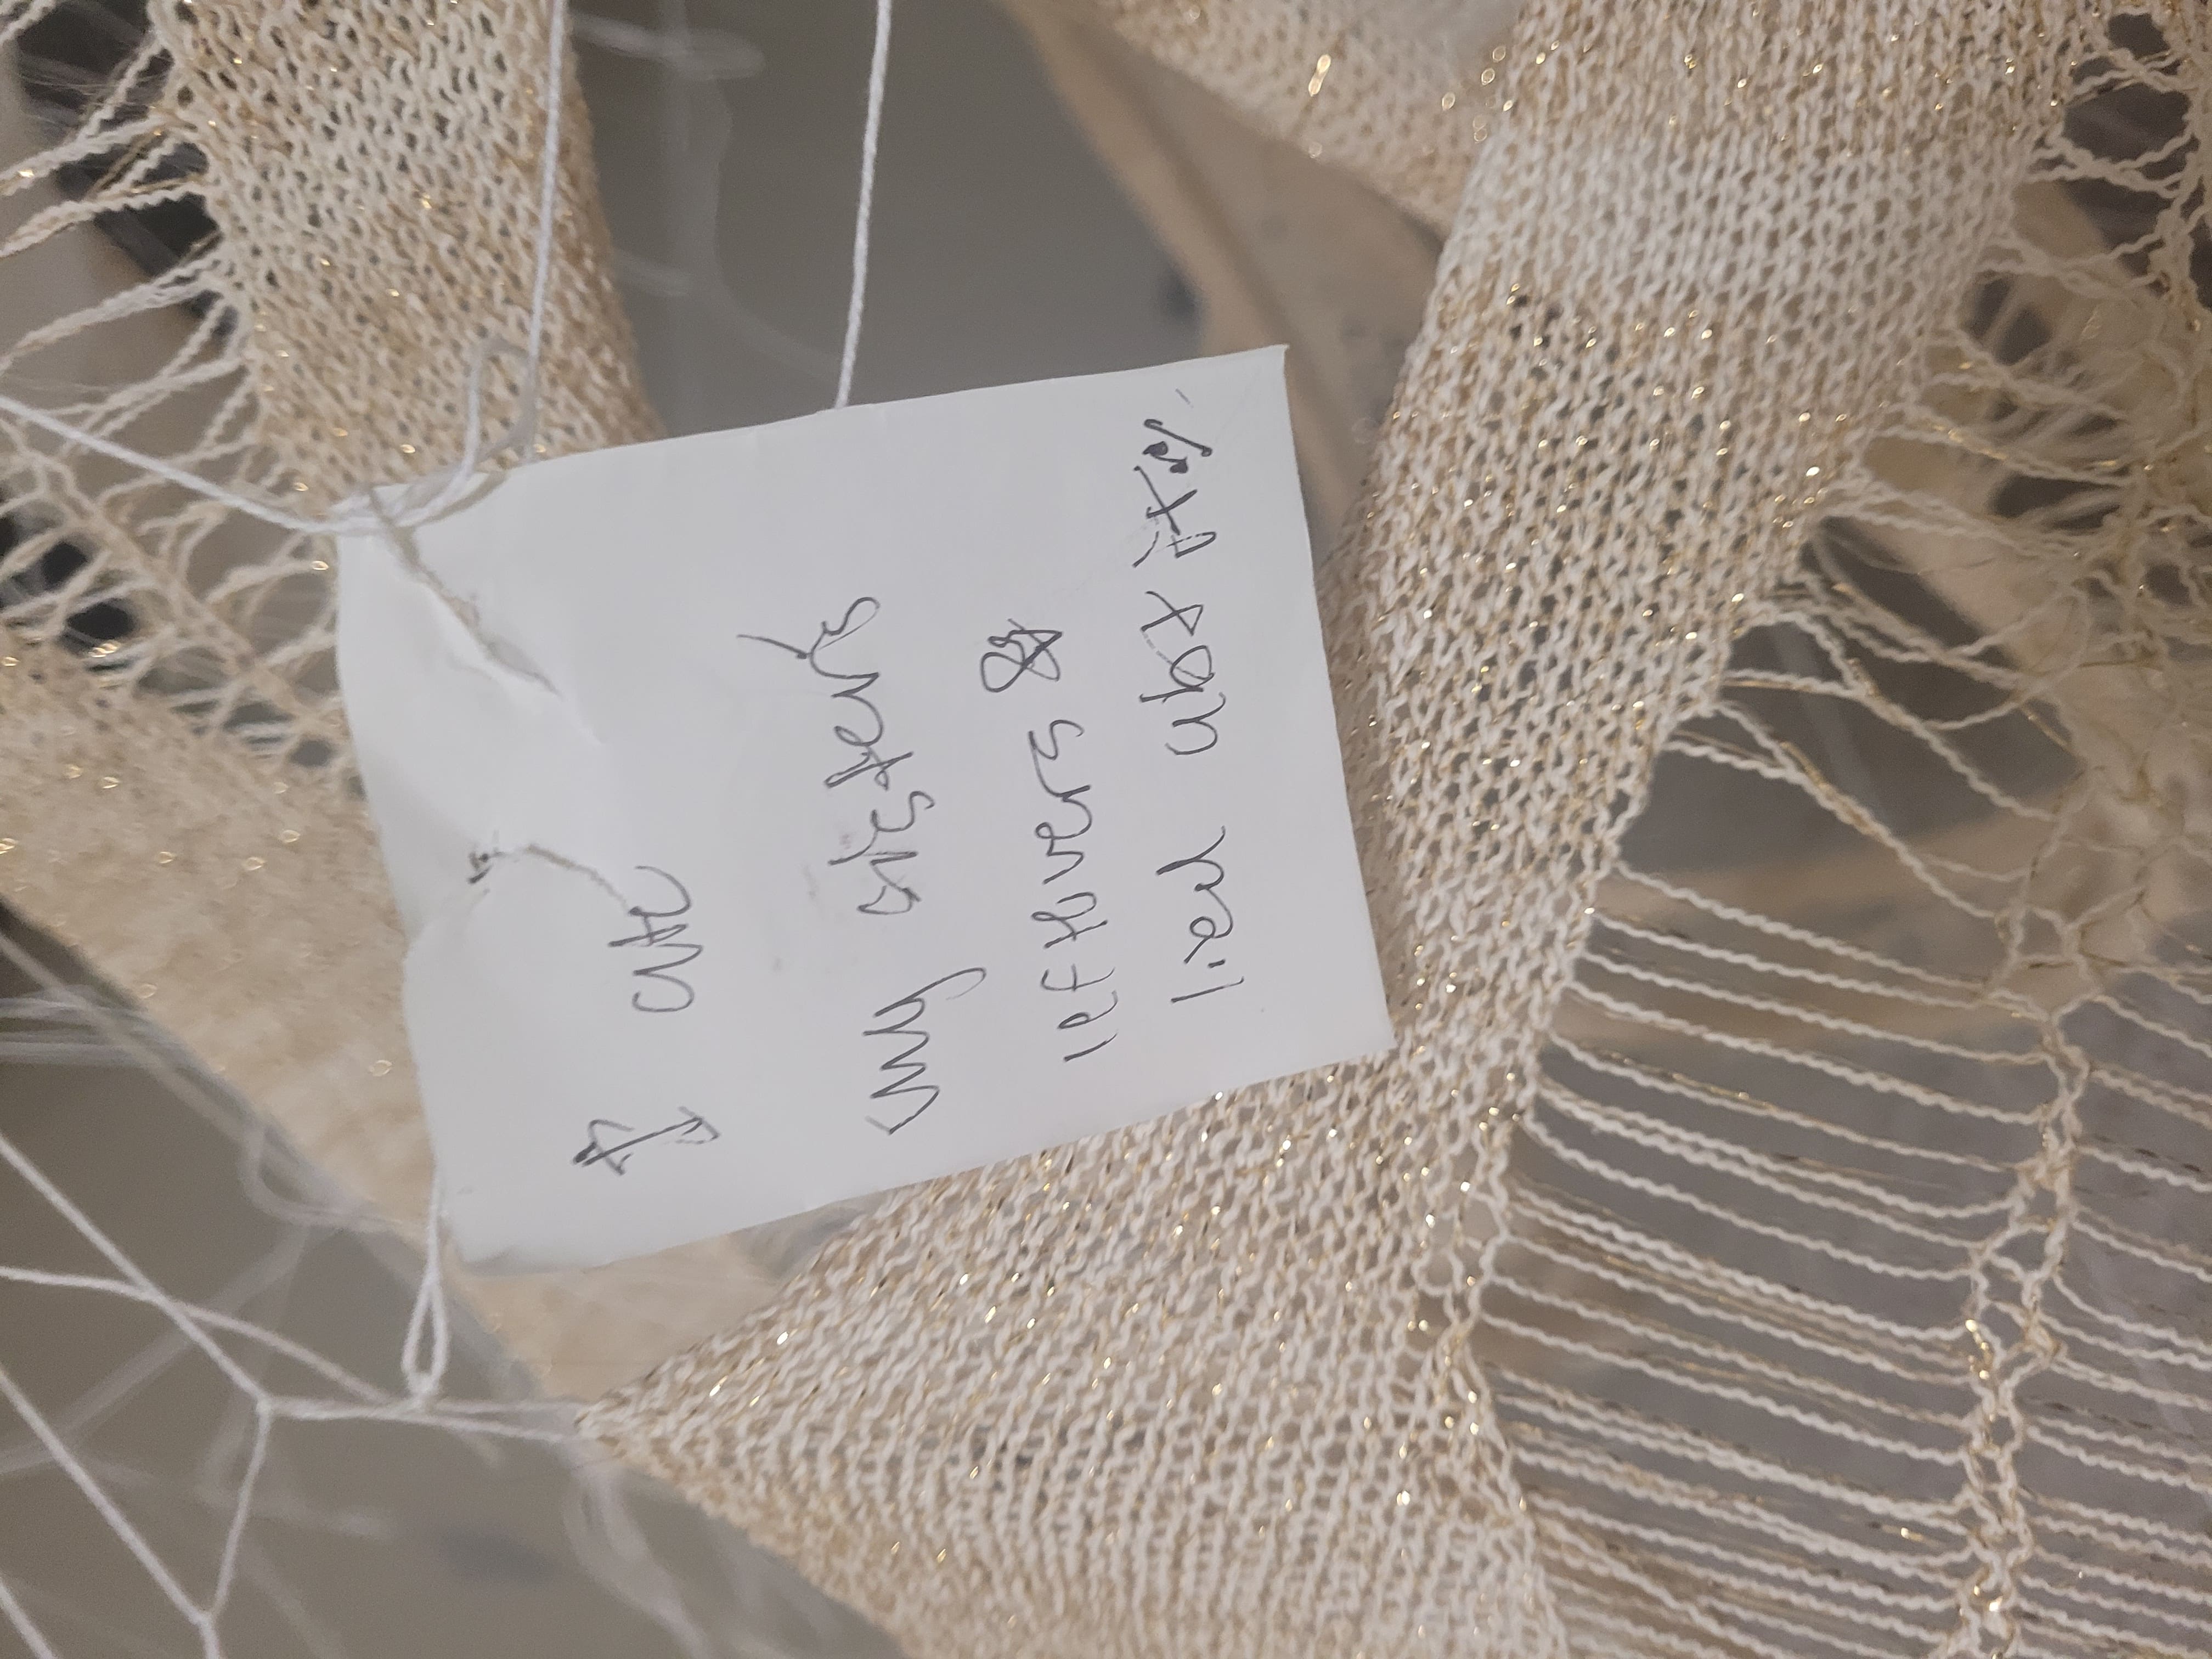 I ate
my sister's
leftovers &
lied abt it.